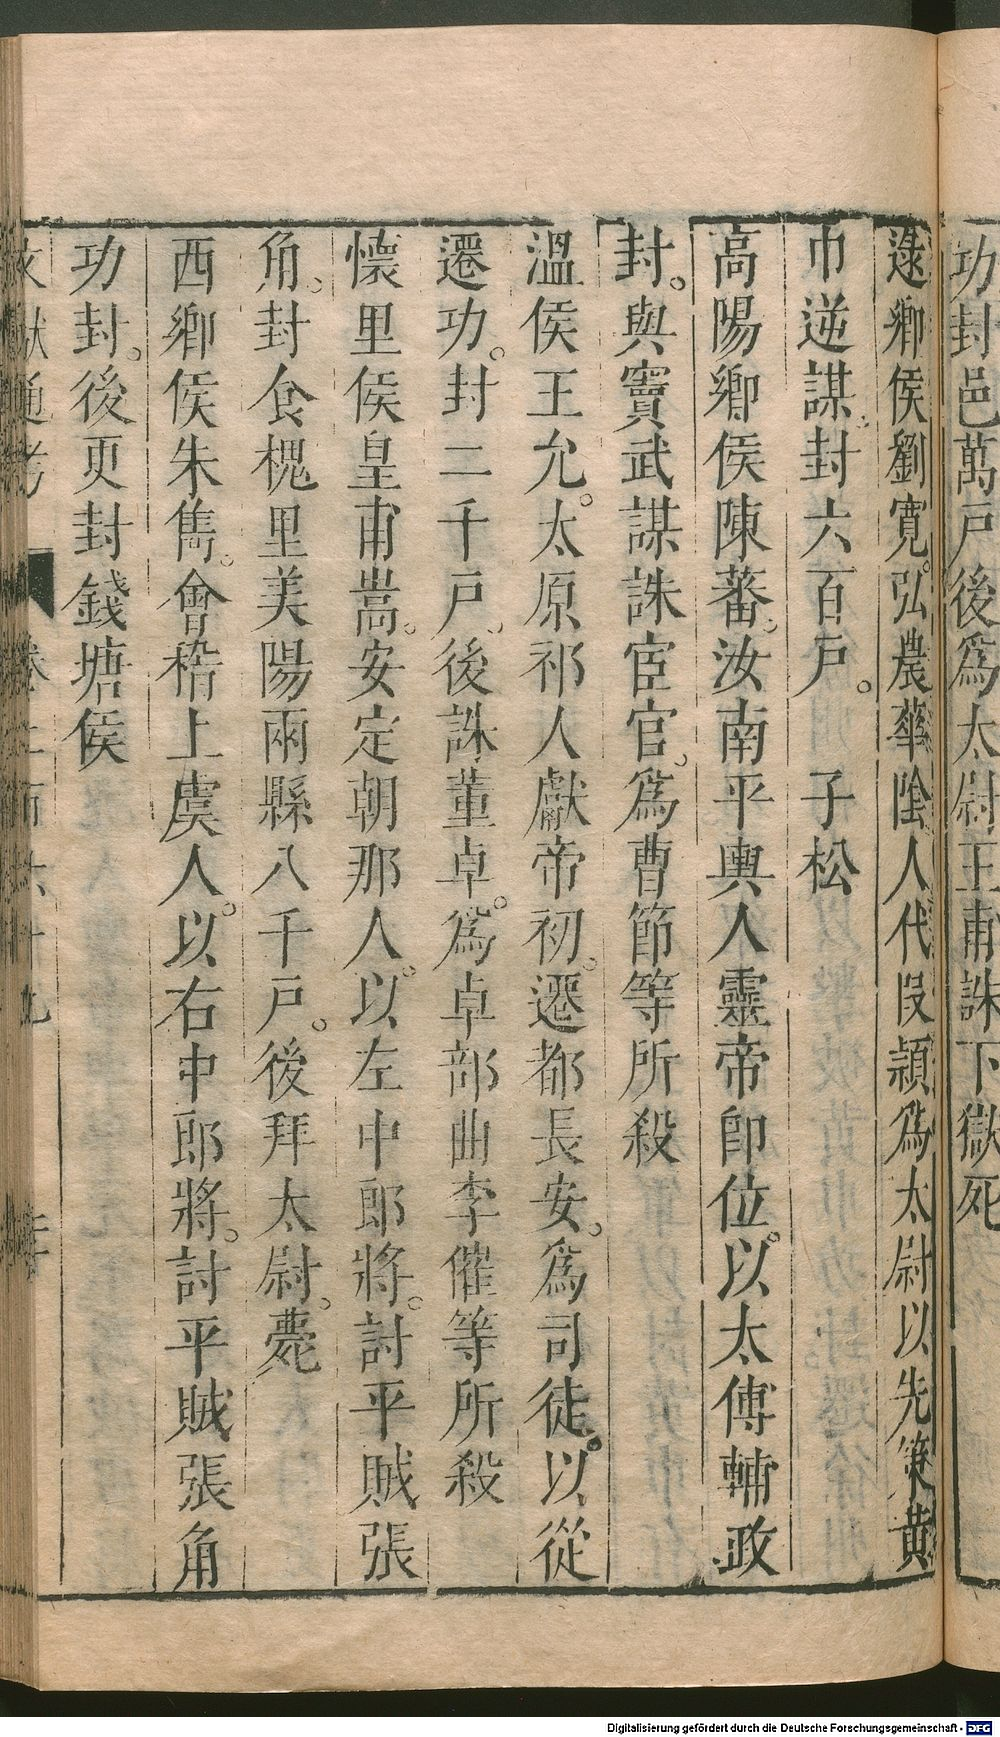 功封邑萬戸後爲太尉王甫誅下獄死
逯鄕侯劉寬。弘農華陰人代段熲爲太尉以先策黃
巾逆謀。封六百戸。　子松
高陽鄕侯陳蕃。汝南平輿人靈帝卽位。以太傅輔政
封。與竇武謀誅宦官。爲曹節等所殺
溫侯王允。太原祁人獻帝初。遷都長安。爲司徒。以從
遷功。封二千戸。後誅董卓。爲卓部曲李傕等所殺
懷里侯皇甫嵩。安定朝那人。以左中郎將。討平賊張
角。封食槐里美陽兩縣八千戸。後拜太尉。薨
西鄕侯朱雋。會稽上虞人。以右中郎將。討平賊張角
功封。後更封錢塘侯
文獻通考　卷二百六十九
Digitalisierung gefördert durch die Deutsche Forschungsgemeinschaft - DFG